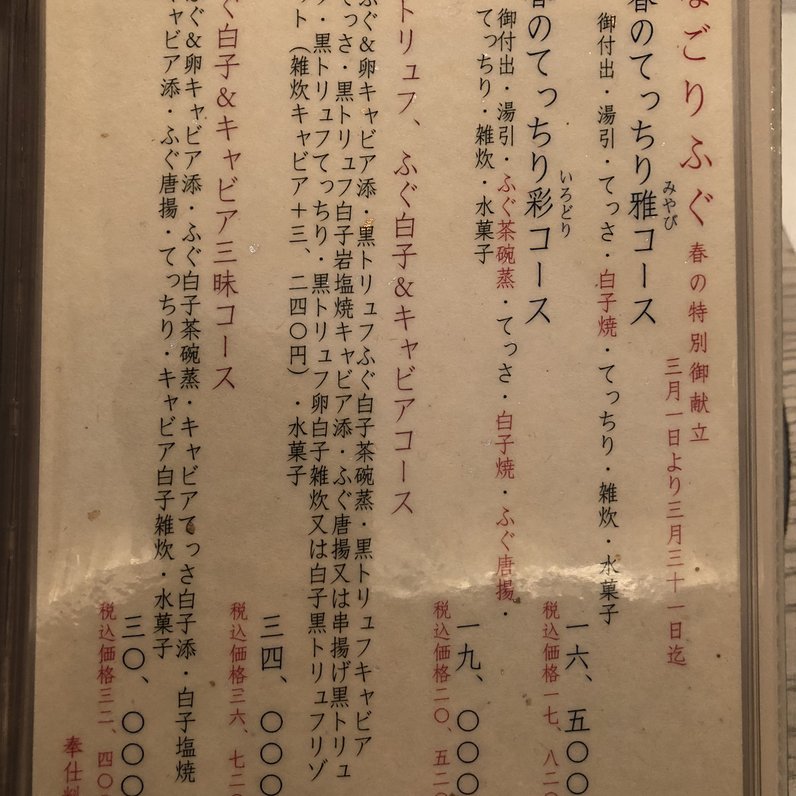 なごりふぐ 春の特別御献立
三月一日より三月三十一日迄
春のてっちり雅コース
みやび
御付出・湯引・てっさ・白子焼・てっちり・雑炊・水菓子
一六、五〇〇
税込価格一七、八二
春のてっちり彩コース
いろどり
御付出・湯引・ふぐ茶碗蒸・てっさ・白子焼・ふぐ唐揚・
てっちり・雑炊・水菓子
一九、〇〇〇
税込価格二〇、五二
トリュフ、ふぐ白子&キャビアコース
ふぐ&卵キャビア添・黒トリュフふぐ白子茶碗蒸・黒トリュフキャビア
てっさ・黒トリュフ白子岩塩焼キャビア添・ふぐ唐揚又は串揚げ黒トリュ
フ・黒トリュフてっちり・黒トリュフ卵白子雑炊又は白子黒トリュフリゾ
ット(雑炊キャビア+三、二四〇円)・水菓子
三四、〇〇〇
税込価格三六、七二
ふぐ白子&キャビア三昧コース
ふぐ&卵キャビア添・ふぐ白子茶碗蒸・キャビアてっさ白子添・白子塩焼
キャビア添・ふぐ唐揚・てっちり・キャビア白子雑炊・水菓子
三〇、〇〇〇
税込価格三二、四〇
奉仕料